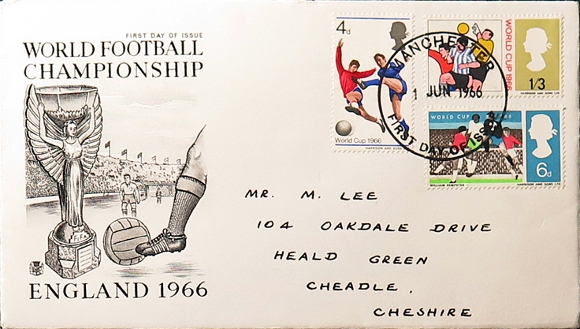 FIRST DAY OF ISSUE
WORLD FOOTBALL
CHAMPIONSHIP
ENGLAND 1966
4d
World Cup 1966
HARRISON AND SONS LTD
WORLD CUP 1966
1/3
HARRISON AND SONS LTD
MANCHESTER
1 JUN 1966
FIRST DAY OF ISSUE
WORLD CUP 1966
6d
WILLIAM KEMPSTER
HARRISON AND SONS LTD
MR. M. LEE
104 OAKDALE DRIVE
HEALD GREEN
CHEADLE,
CHESHIRE